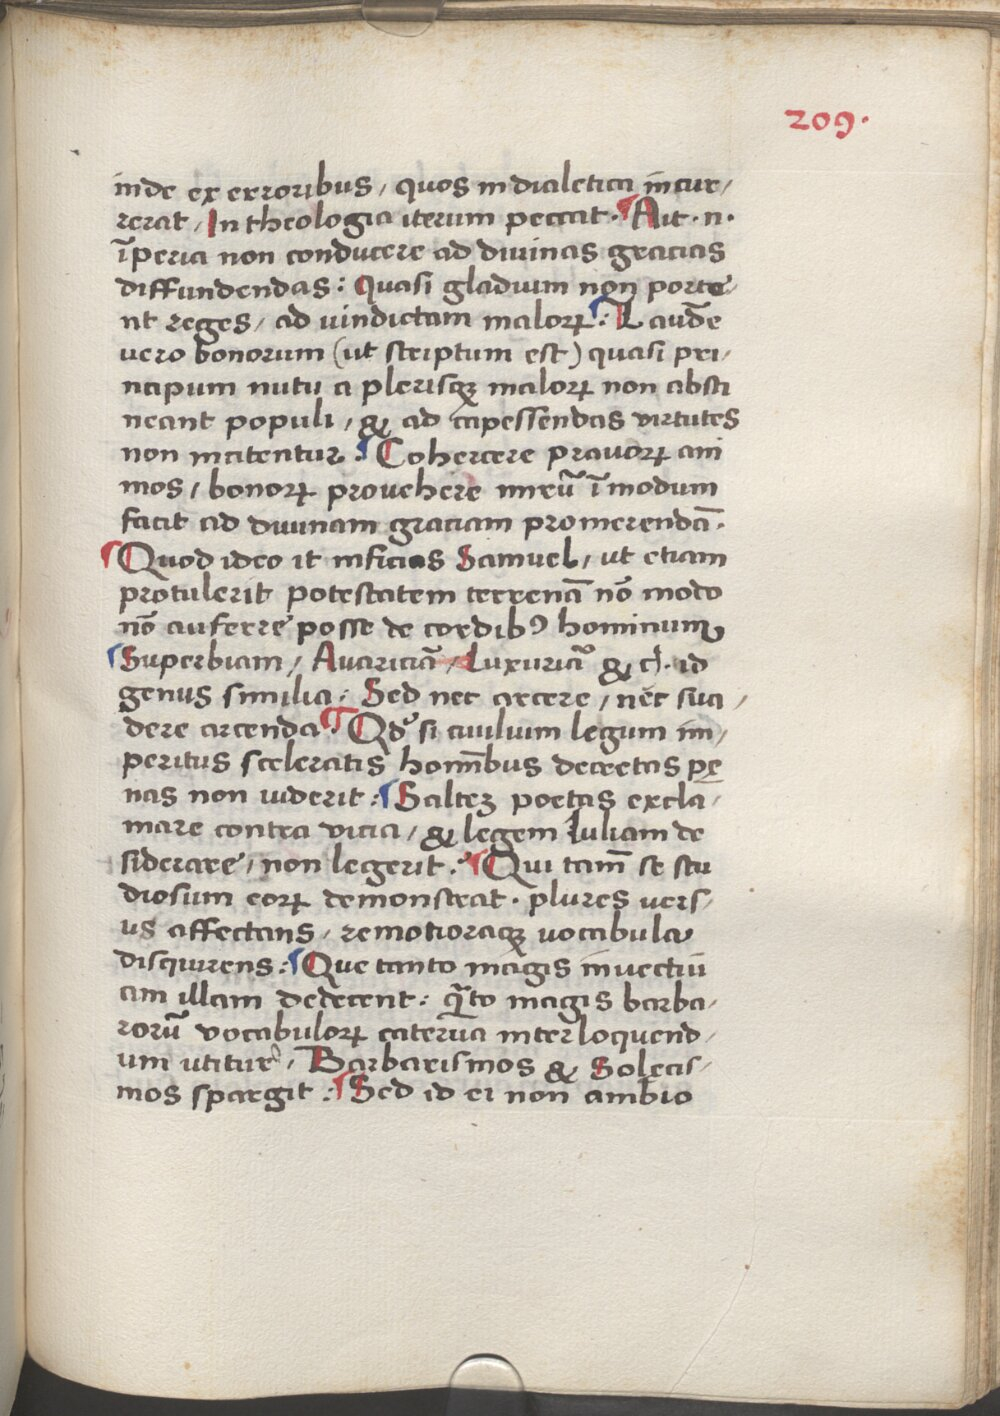 209.
inde ex erroribus, quos in dialetica incur,
rerat, In theologia iterum peccat. ¶ Ait .n.
ĩperia non conducere ad diuinas gracias
diffundendas: Quasi gladium non porte,
nt reges, ad uindictam maloꝝ: ¶ Laudẽ
uero bonorum (ut scriptum est) quasi pri,
ncipum nutu a plerisqꝫ maloꝝ non absti
neant populi, & ad capessendas virtutes
non incitentur: ¶ Cohercere prauoꝝ ani
mos, bonoꝝ prouehere mirũ ĩ modum
facit ad diuinam graciam promerendã.
¶ Quod ideo it inficias Samuel, ut etiam
protulerit potestatem terrenã nõ modo
nõ auferre posse de cordibꝰ hominum,
¶ Superbiam, Auariciã, Luxuriã & c̃. id
genus similia: Sed nec arcere, nec sua,
dere arcenda ¶ Qđ si ciuilium legum im,
peritus sceleratis hom̃ibus decretas pę
nas non uiderit: ¶ Salteꝫ poetas excla,
mare contra vicia, & legem Iuliam de
siderare, non legerit. ¶ Qui tam̃ se stu
diosum eoꝝ demonstrat. plures uers,
us affectans, remotioraqꝫ uocabula
disquirens: ¶ Que tanto magis inuectiu
am illam dedecent: q̃to magis barba,
rorũ vocabuloꝝ caterua inter loquend,
um utitur, Barbarismos & Solęcis,
mos spargit: ¶ Sed id ei non ambio